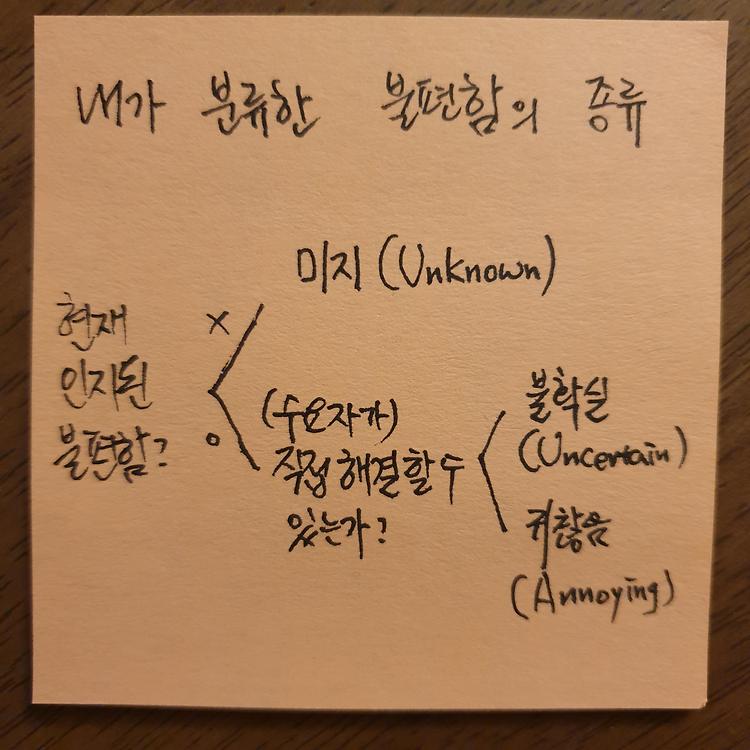 내가 분류한 불편함의 종류
미지 (Unknown)
현재
인지된
불편함?
×
○
(수요자가)
직접 해결할 수
있는가?
불확실
(Uncertain)
귀찮음
(Annoying)